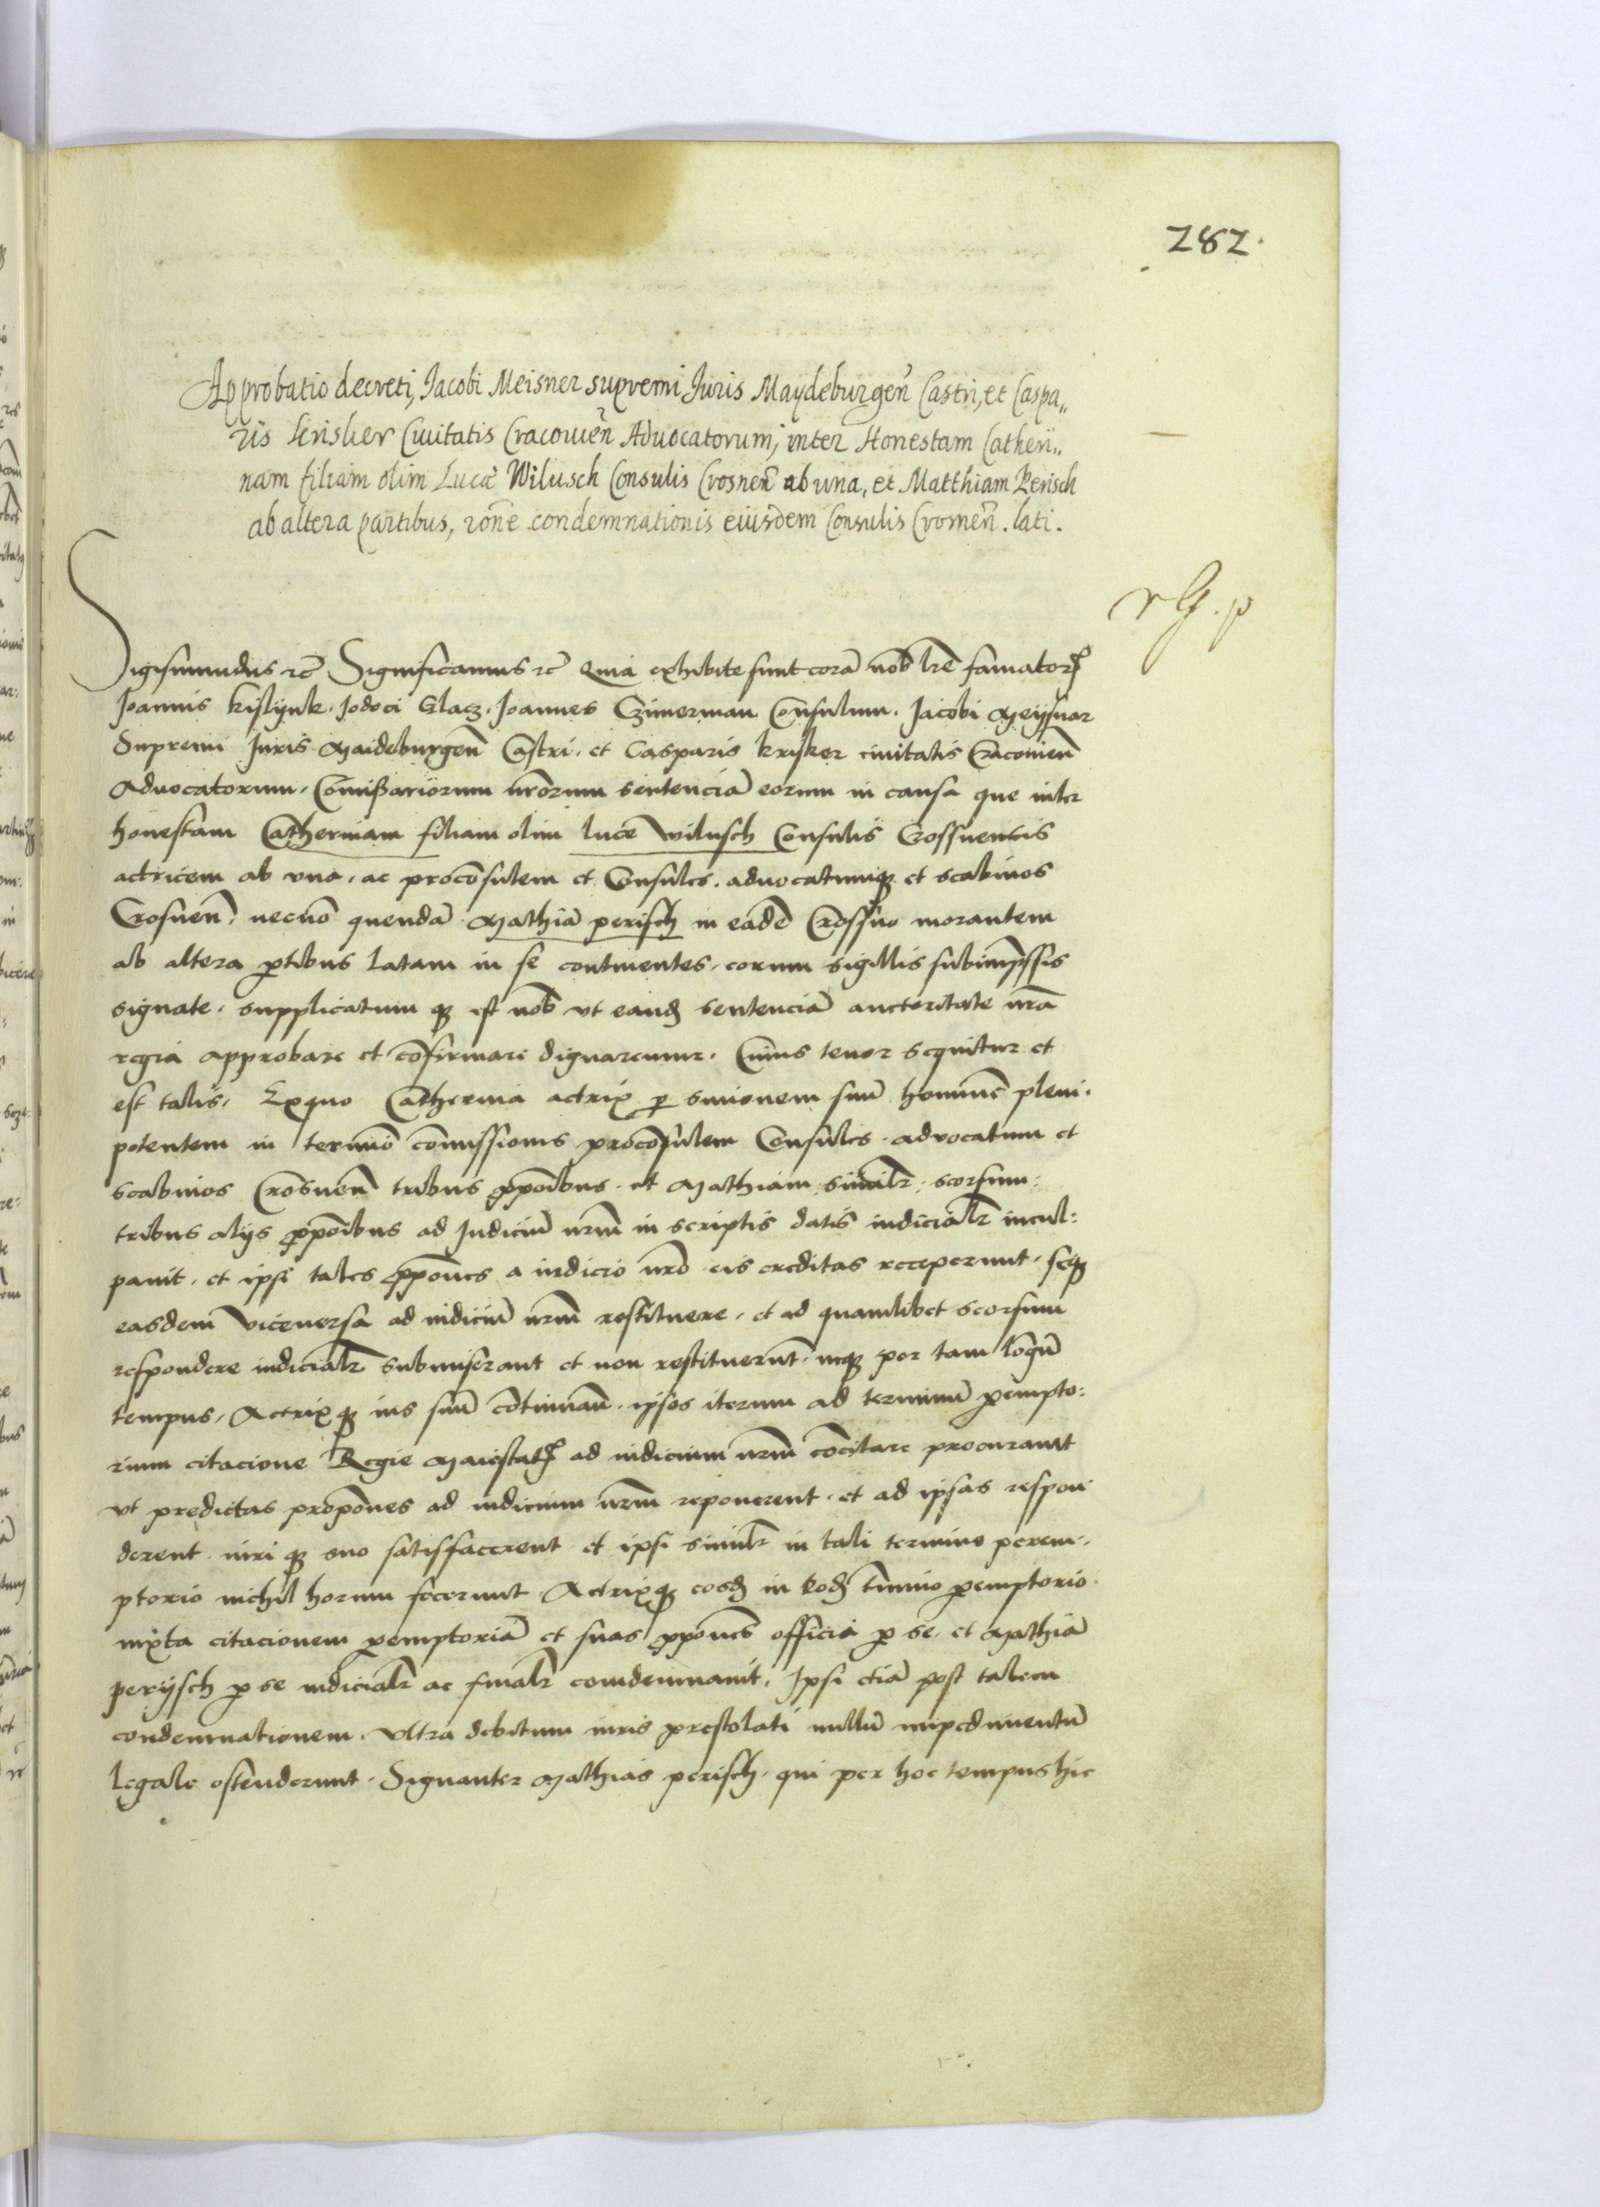 282.
Approbatio decreti, Jacobi Meisner supremi Juris Maydeburgen̄ Castri, et Caspa„
ris Krisker Civitatis Cracovien̄ Advocatorum, inter Honestam Catheri„
nam filiam olim Lucæ Wilusch Consulis Crosnen̄ ab una, et Matthiam Perisch
ab altera partibus, rōne condemnationis eiusdem Consulis Crosnen̄. lati.
Sigismundus etc̄ Significamus etc̄ Quia exhibite sunt corā nob̄ lr̄e famatorꝝ
Joannis kislynk. Jodoci Glacz. Joannes Czimerman Con̄sulum. Jacobi Meysnar
Supremi Juris Maideburgen̄ Castri. et Casparis krisker civitatis Cracovien̄
Advocatorum. Com̄issariorum nr̄orum sentenciā eorum in causa que inter
honestam Catherinam filiam olim luce wilusch Consulis Crossnensis
actricem ab una. ac procōnsulem et Consules. advocatumqꝫ et scabinos
Crosnen̄. necnō quendā Mathiā perisch in eadē Crossno morantem
ab altera ꝑtibus latam in se continentes. eorum sigillis subimp̄ssis
signate. supplicatum qꝫ est nob̄ ut eandꝫ sentenciā auctoritate nr̄a
regia approbare et cōfirmare dignaremur. Cuius tenor sequitur et
est talis. Exquo Catherina actrix ꝑ Simonem suū hominē pleni.
potentem in termīo com̄issionis procōsulem Consules. advocatum et
scabinos Crosnen̄ tribus ꝓpōibus. et Mathiam similr̄ seorsum:
tribus alys ꝓpōibus ad Judiciū nr̄m in scriptis datis iudicialr̄ incul:
pauit. et ipsi tales ꝓpōnes a iudicio nr̄o eis creditas receperunt. seqꝫ
easdem viceversa ad iudiciū nr̄m restituere. et ad quamlibet seorsum
respondere iudicialr̄ submiserant et non restituerunt. usqꝫ per tam lōgū
tempus. Actrixqꝫ ius suū cōtinuan̄. ipsos iterum ad terminū ꝑempto:
rium citacione Regie Maiestatꝭ ad iudicium nr̄m cōcitare procurauit
ut predictas propōnes ad iudicium nr̄m reponerent. et ad ipsas respon
derent. iuri qꝫ suo satisfacerent et ipsi similr̄ in tali termino perem.
ptorio nichil horum fecerunt. Actrixqꝫ eosdꝫ in eodꝫ tmīno ꝑemptorio.
iuxta citacionem ꝑemptoriā et suas ꝓpōnes officia ꝑ se. et Mathiā
peryssch ꝑ se iudicialr̄ ac finalr̄ condemnauit. Ipsi etiā post talem
condemnationem. Ultra debitum iuris prestolati nullū impedimentū
legale ostenderunt. Signanter Mathias perisch. qui per hoc tempus hic